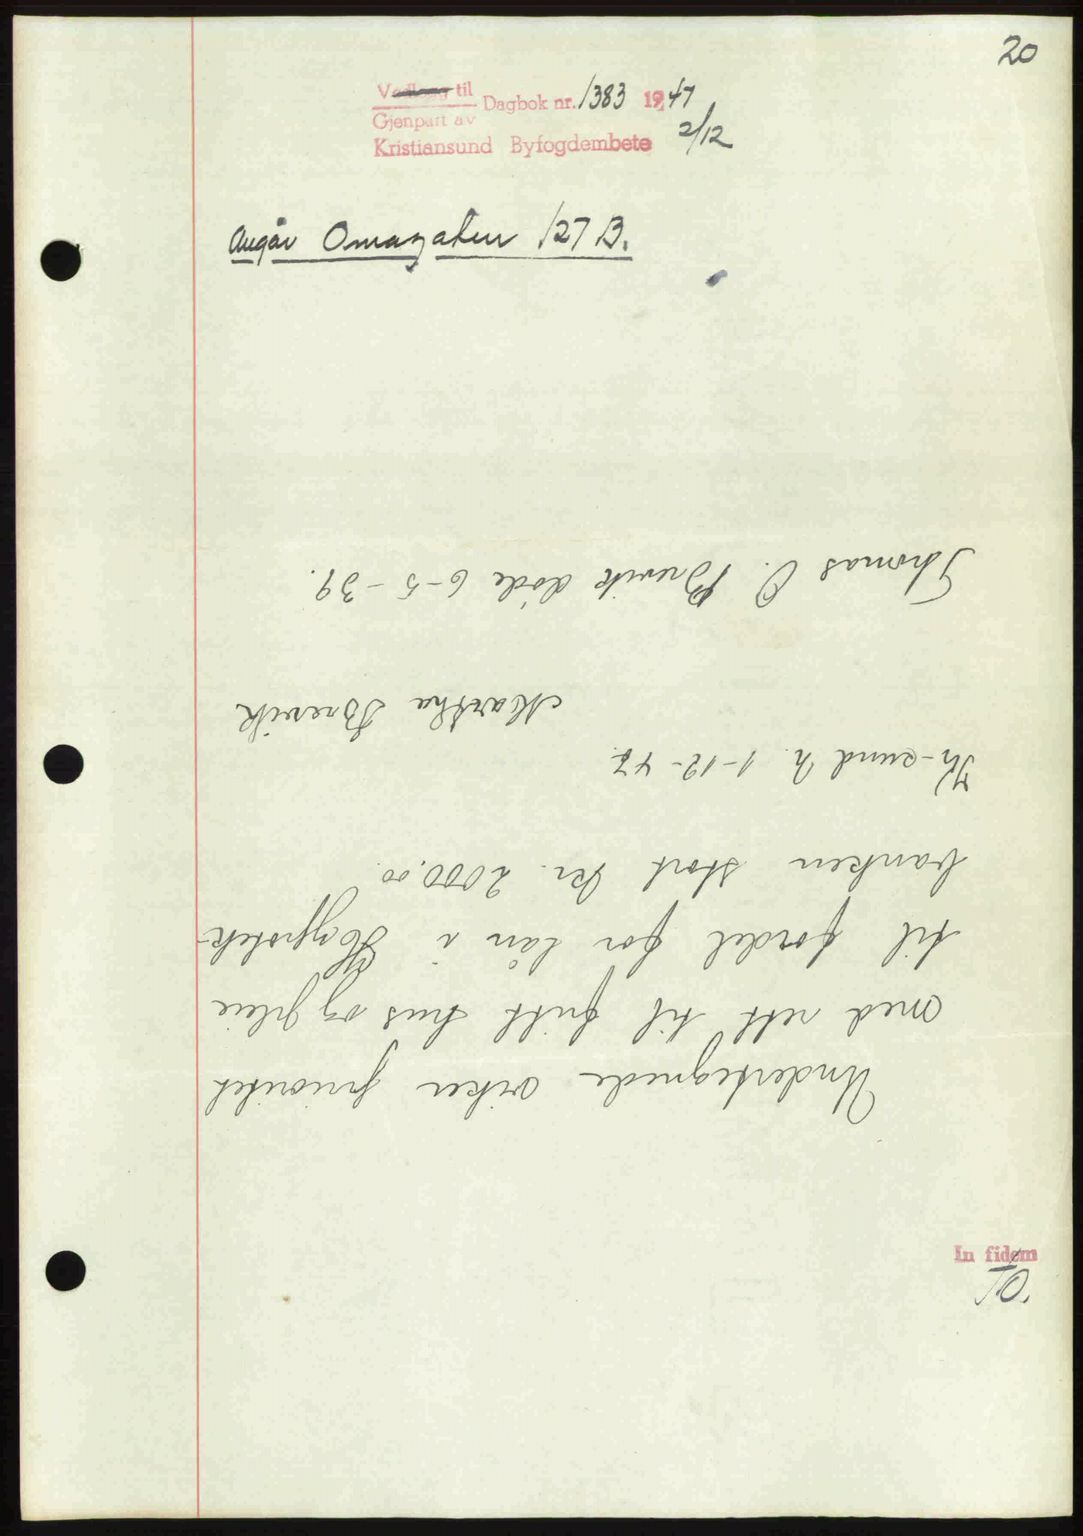 20
Vedlegg til
Gjenpart av
Dagbok nr. 1383 1947
Kristiansund Byfogdembete 2/12
Angår Omagaten 127 B.
Undertegnede viker prioritet
med rett til fritt hus og pleie
til fordel for lån i Hypotek-
banken stort kr. 2000.00
Kr-sund N. 1-12-47.
Martha Brevik
Thomas O. Brevik døde 6-5-39.
In fidem